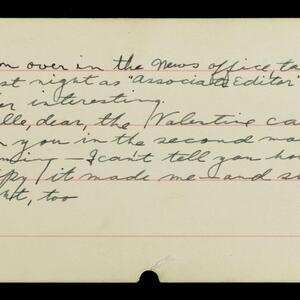 over in the News office, ta
st night as "Associate Editor"
er interesting.
lle, dear, the Valentine ca
you in the second ma
ning — I can't tell you ho
ppy it made me — and su
et, too